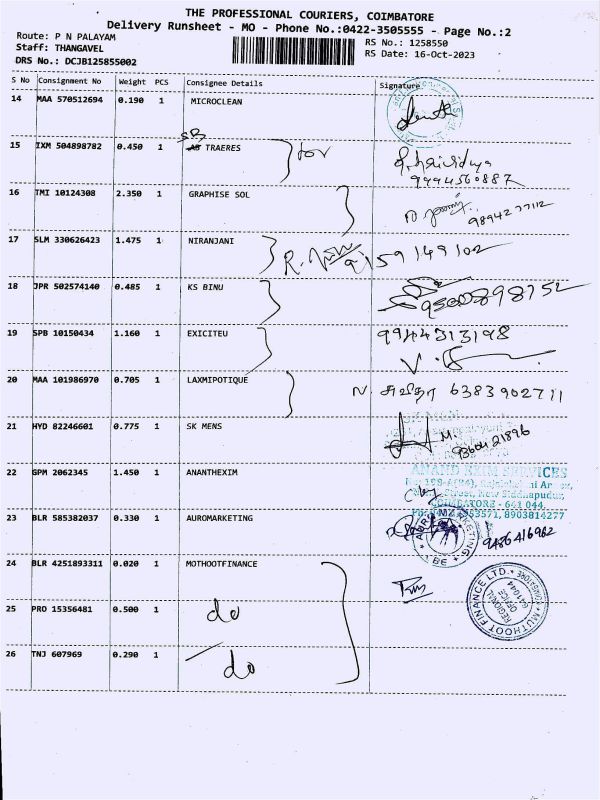 THE PROFESSIONAL COURIERS, COIMBATORE
Delivery Runsheet - MO - Phone No.:0422-3505555 - Page No.:2
Route: P N PALAYAM
Staff: THANGAVEL
DRS No.: DCJB125855002
RS No.: 1258550
RS Date: 16-Oct-2023
S No Consignment No Weight PCS Consignee Details Signature
14 MAA 570512694 0.190 1 MICROCLEAN
15 IXM 504898782 0.450 1 TRAERES for
9994560887
16 TMI 10124308 2.350 1 GRAPHISE SOL
9894277112
17 SLM 330626423 1.475 1 NIRANJANI 9159149102
18 JPR 502574140 0.485 1 KS BINU 9500898752
19 SPB 10150434 1.160 1 EXICITEU 9944313198
20 MAA 101986970 0.705 1 LAXMIPOTIQUE N. சுவிதா 6383902711
21 HYD 82246601 0.775 1 SK MENS M.
9360421896
22 GPM 2062345 1.450 1 ANANTHEXIM
ANAND EXIM SERVICES
New Siddhapudur,
COIMBATORE - 641 044.
8903814277
23 BLR 585382037 0.330 1 AUROMARKETING 9486416962
24 BLR 4251893311 0.020 1 MOTHOOTFINANCE
MUTHOOT FINANCE LTD.
REGIONAL
OFFICE
641044
25 PRO 15356481 0.500 1 do
26 TNJ 607969 0.290 1 do